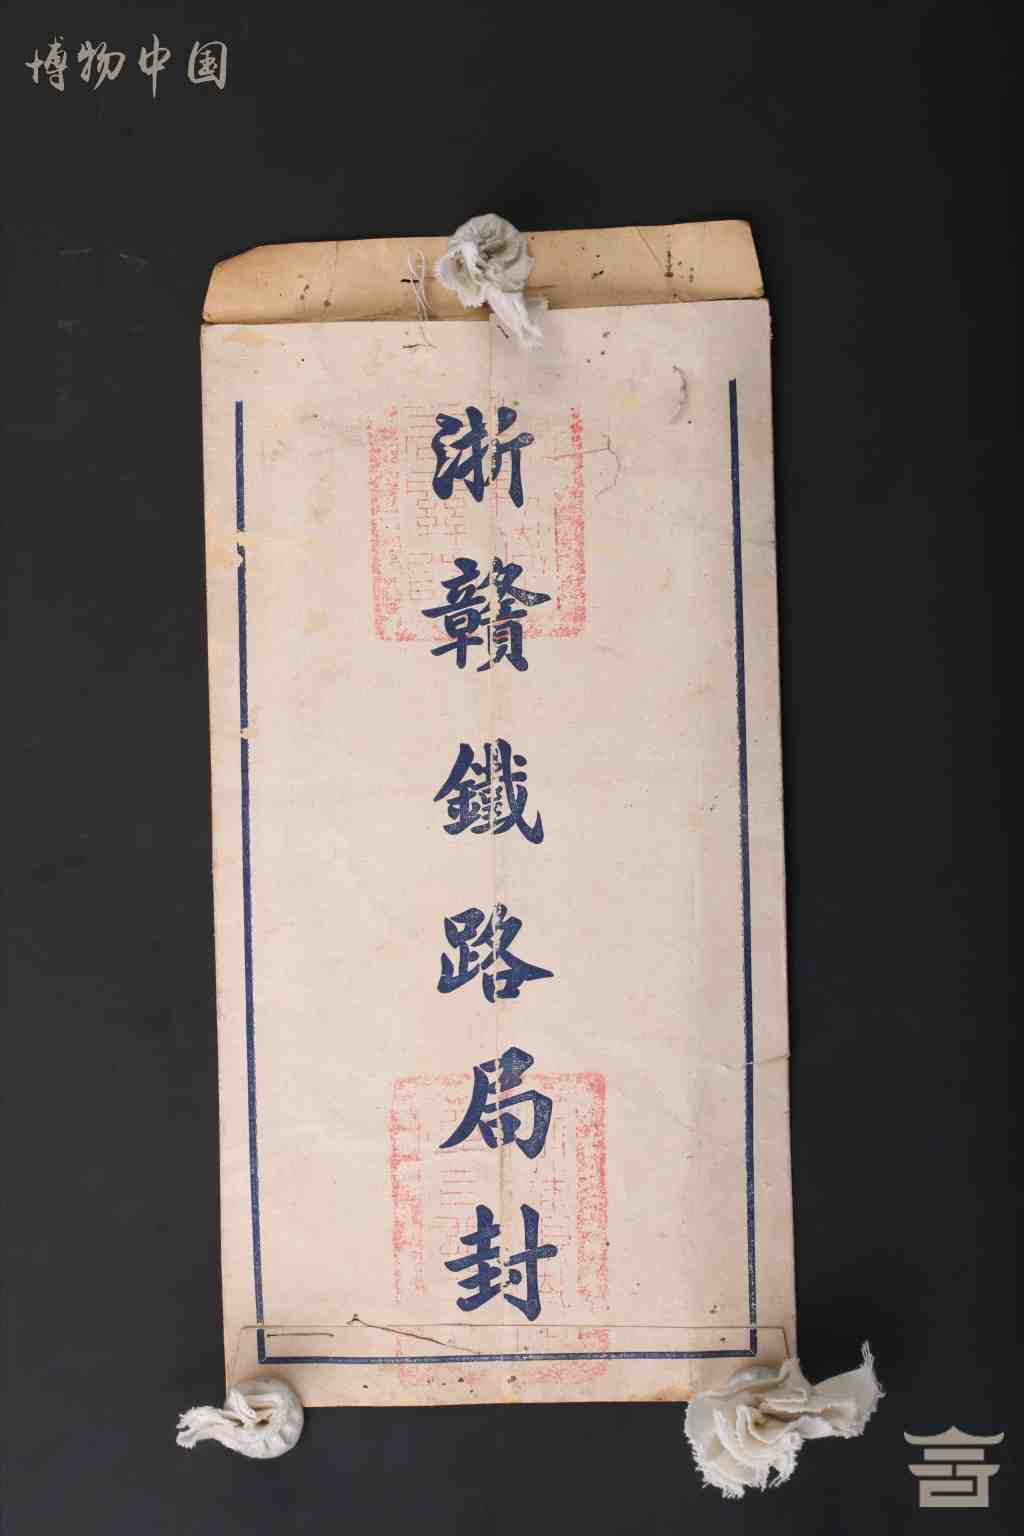 博物中国
浙贛鐵路局封